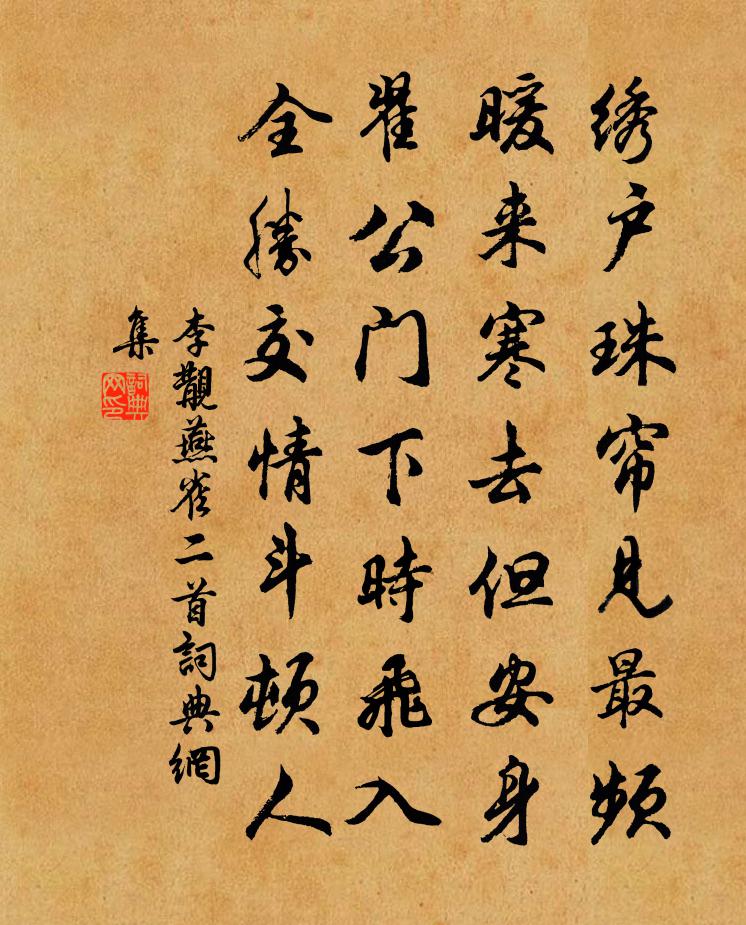 绣户珠帘见最频
暖来寒去但安身
翟公门下時飛入
全勝交情斗顿人
李觏燕雀二首詞典網
集
詞典
网印